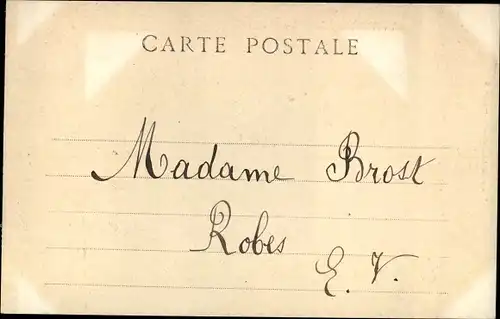 CARTE POSTALE
Madame Brost
Robes
E. V.